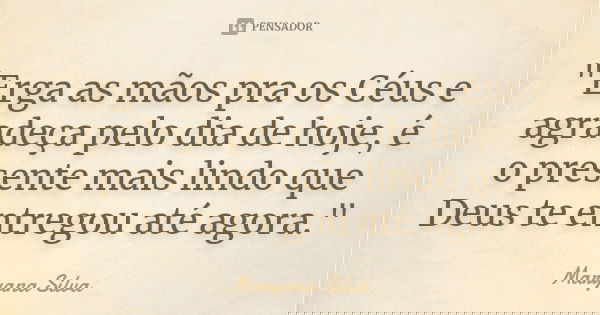 PENSADOR
"Erga as mãos pra os Céus e
agradeça pelo dia de hoje, é
o presente mais lindo que
Deus te entregou até agora."
Maryana Silva